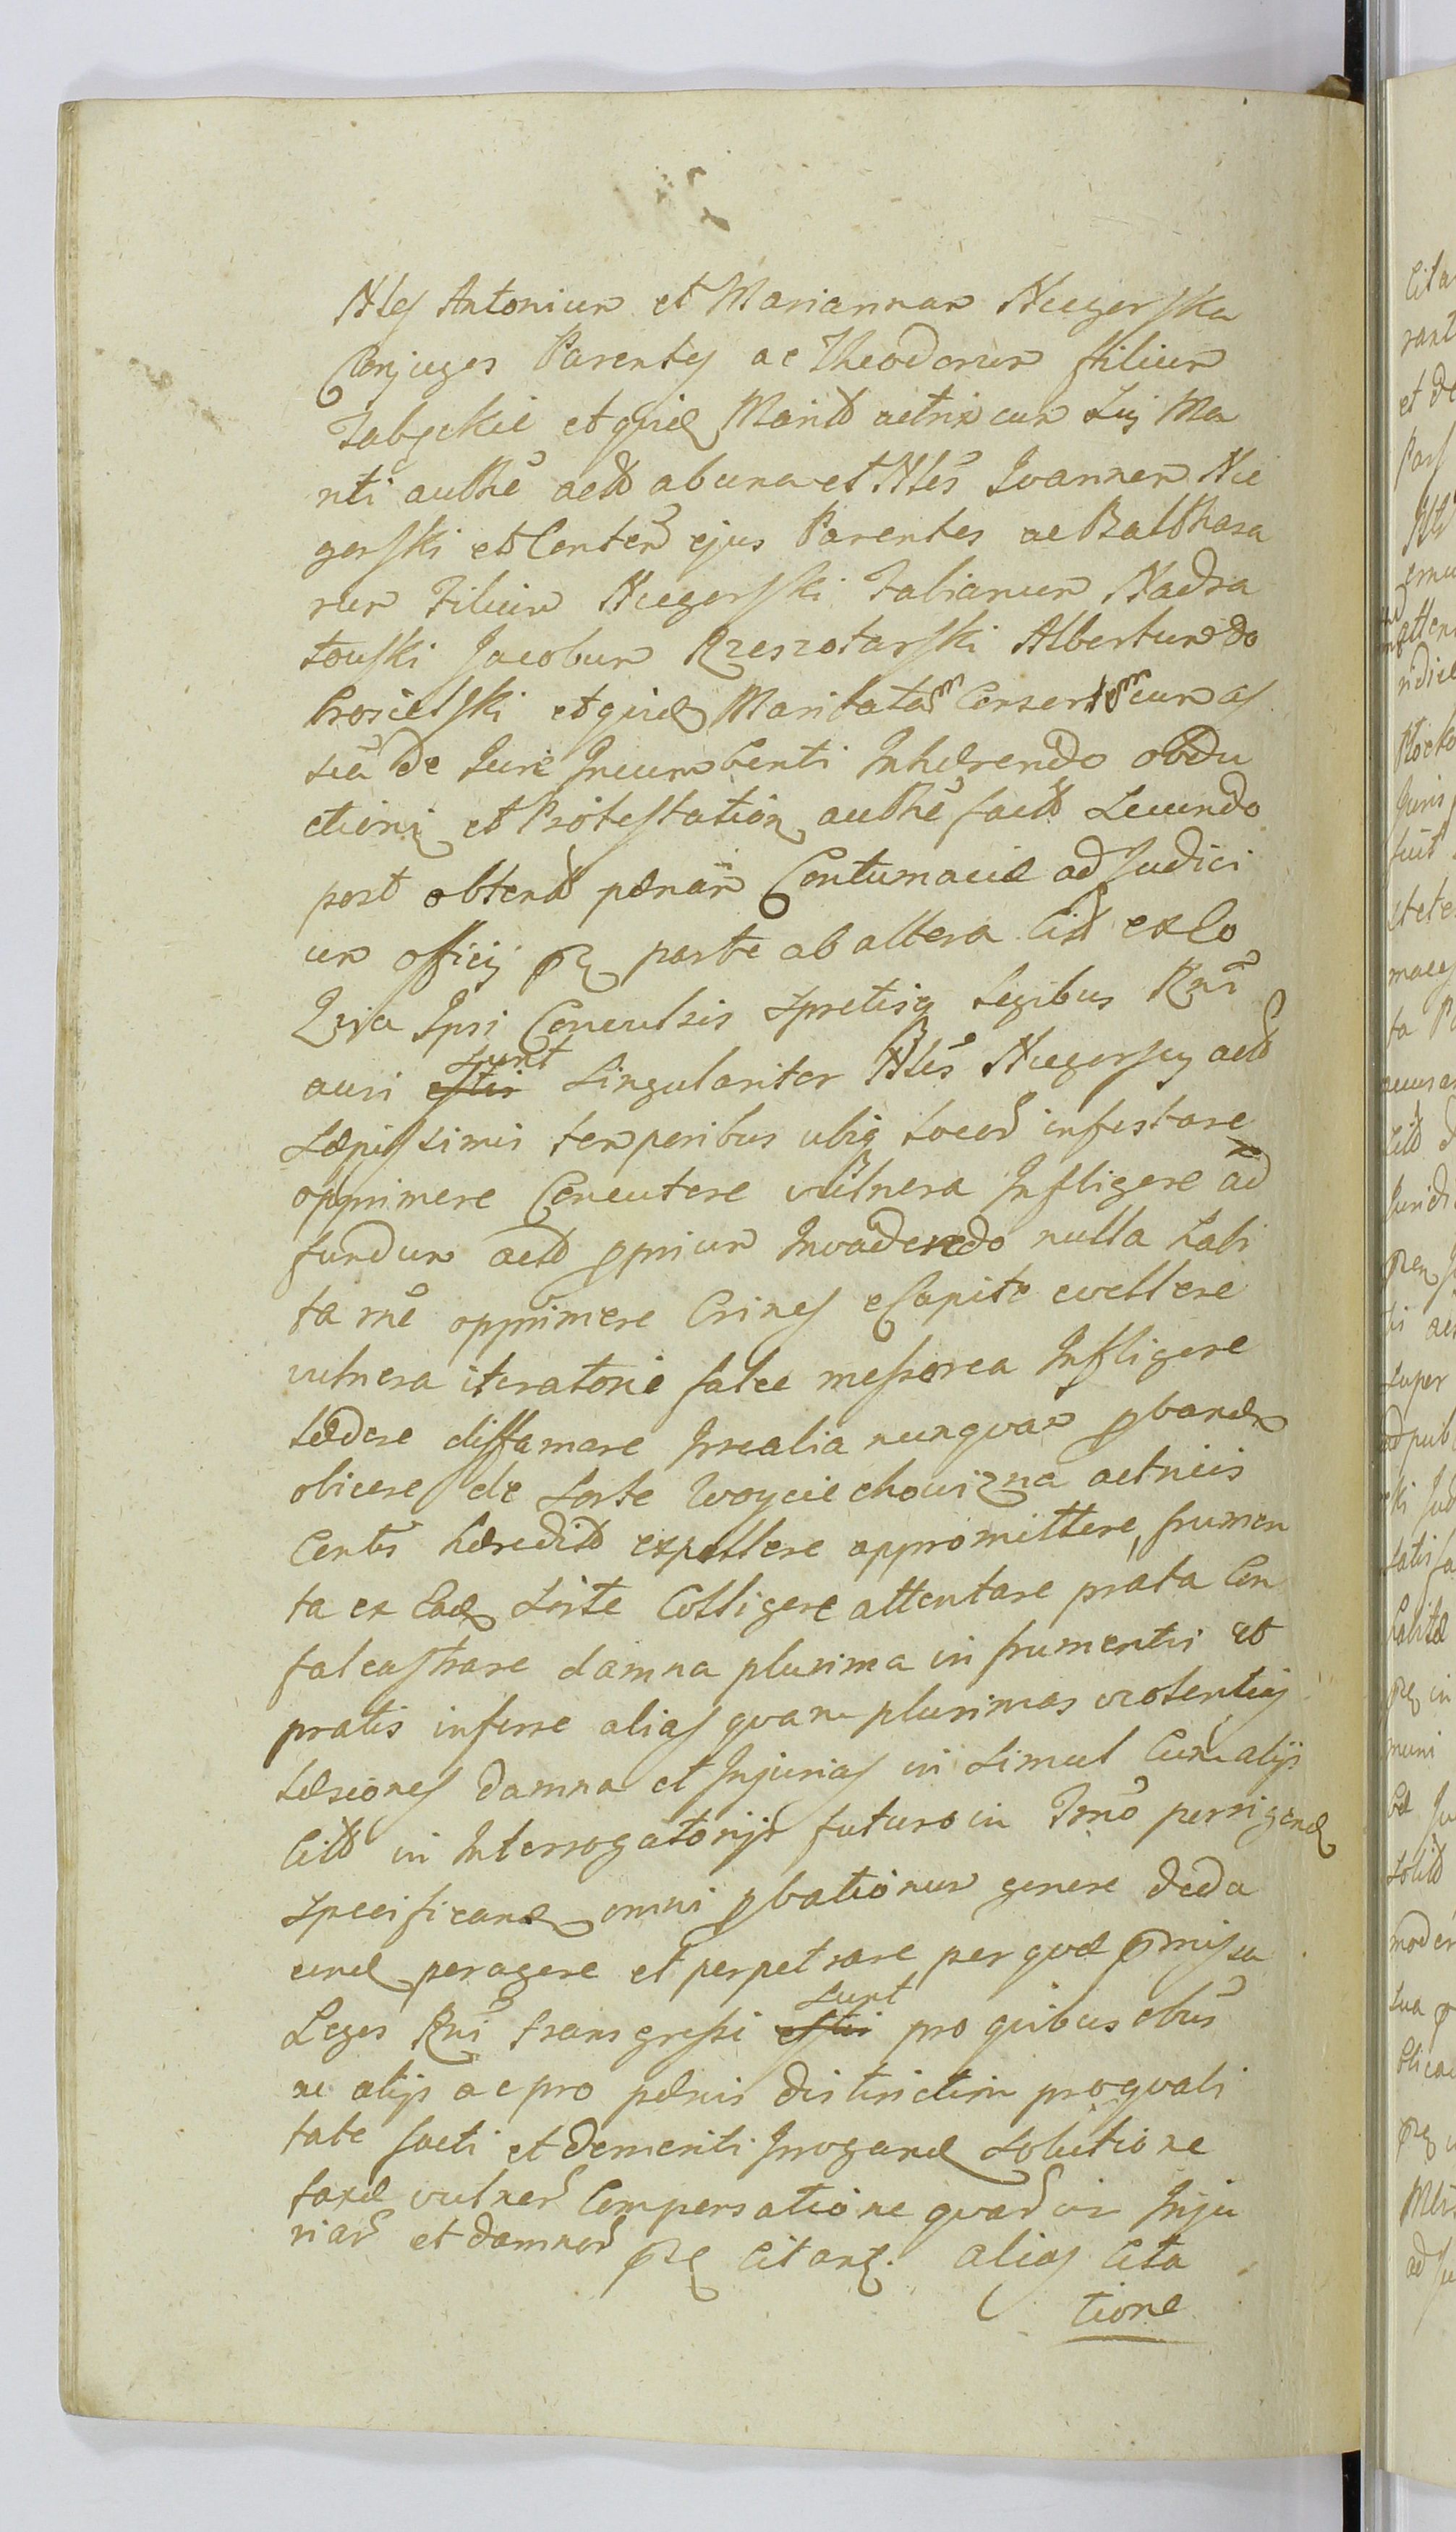 Nles Antonium et Mariannam Niegorska
Conjuges Parentes ac Theodorum filium
Zabẹckie et quid Marito actrix cum sui Ma
riti authe acto ab una et Nles Joannem Nie
gorski et Consten ejus Parentes ac Balthasa
rum Filium Niegorski Fabianum Nadra
towski Jacobum Rzeszotarski Albertum Do
brosielski et quid Maritatam Consortem cum as
sia de Jure Incumbenti Inhærendo obdu
ctioni et Protestation authe facto secundo
post obtent pænam Contumaciæ ad Judici
um officij parte ab altera Cit ex eo
Quia Ipsi Convulsis spretisq Legibus Rni
ausi estis sunt singulariter Nles Niegorscy acto
sæpissimis temporibus ubiq locor infestare
opprimere Concutere vulnera Infligere ad
fundum acto pprium Invadendo nulla habi
ta rne opprimere Crines e Capite evellere
vulnera iteratorie falce messorea Infligere
lædere diffamare Irrealia nunquam pband
obicere de sorte Woyciechowizna actricis
Contis hæredit expellere appromittere, frumen
ta ex Ead sorte Colligere attentare prata Con
falcastrare damna plurima in frumentis et
pratis inferre alias quam plurimas violentias
læsiones damna et Injurias in simul Cum alijs
Cito in Interrogatorijs futuro in Tmo porrigend
specificand omni pbationum genere dedu
cend peragere et perpetrare per quæ pmissa
Leges Rni transgressi estis sunt pro quibus obus
ac alijs ac pro pænis districtim pro quali
tate facti et demeriti Irrogand solutione
taxæ vulner Compensatione quar vis Inju
riar et damnor Citant. alias Cita
tione